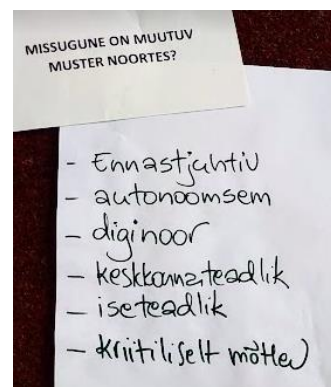 MISSUGUNE ON MUUTUV
MUSTER NOORTES?
- Ennastjuhtiv
- autonoomsem
- diginoor
- keskkonnateadlik
- iseteadlik
- kriitiliselt mõtlev